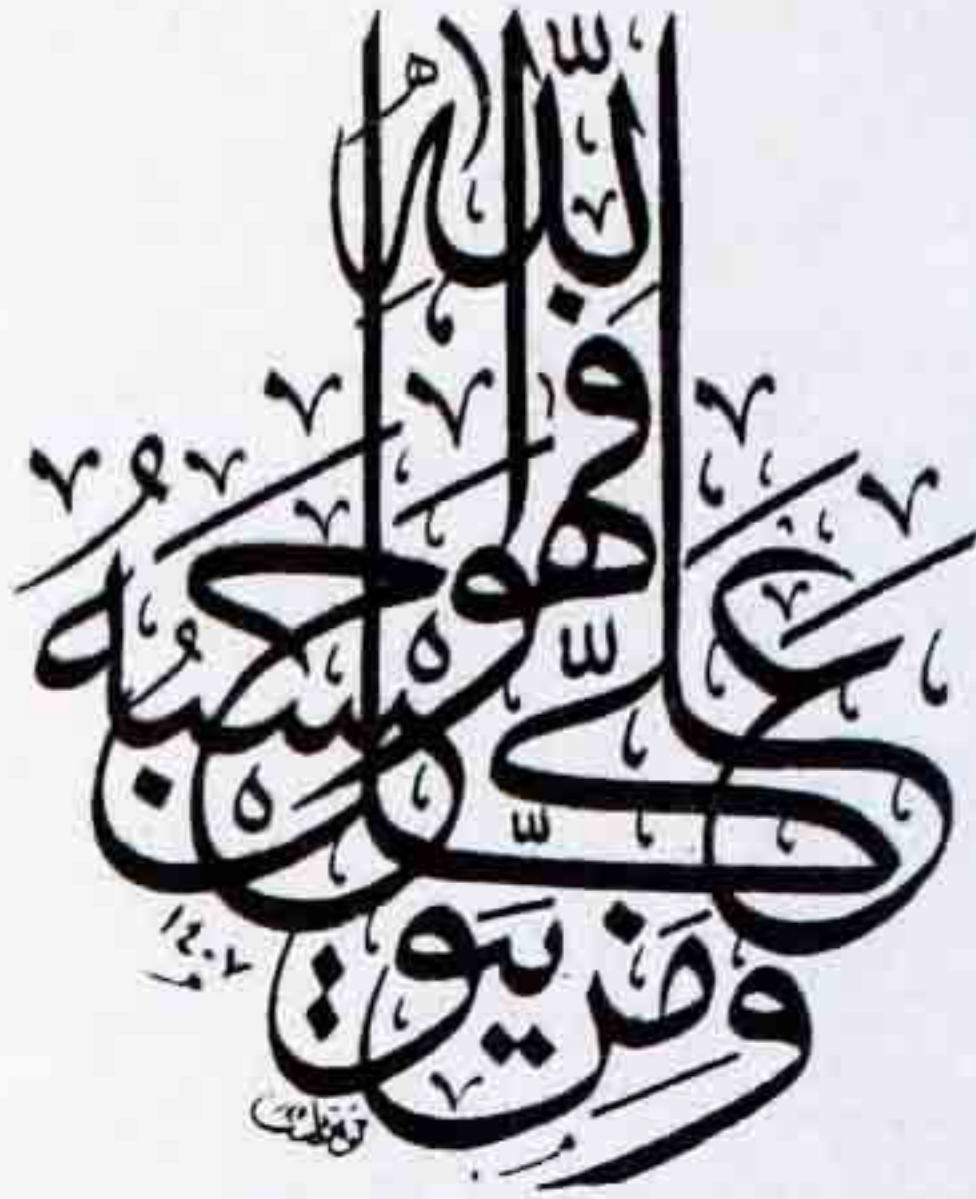 ومن يتوكل على الله فهو حسبه
١٤٠٧